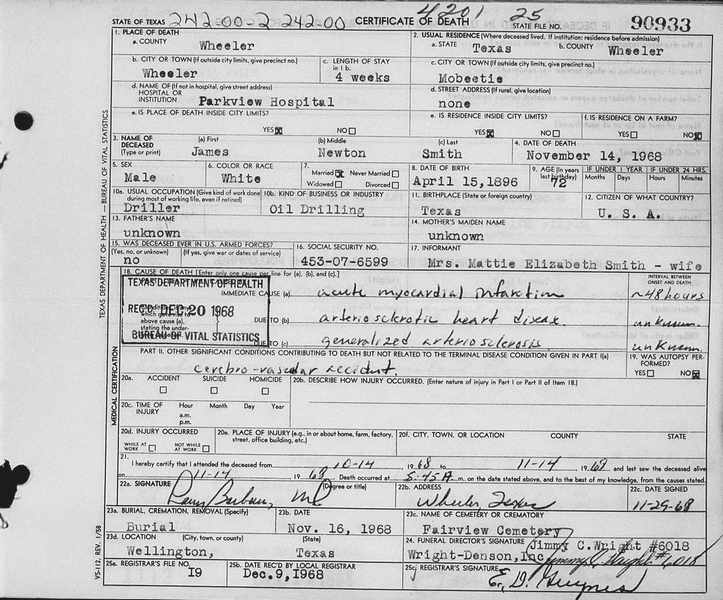 STATE OF TEXAS 242-00-2 242-00 CERTIFICATE OF DEATH 4201 25 STATE FILE NO. 90933
1. PLACE OF DEATH
a. COUNTY Wheeler
2. USUAL RESIDENCE (Where deceased lived. If institution: residence before admission)
a. STATE Texas b. COUNTY Wheeler
b. CITY OR TOWN (If outside city limits, give precinct no.) Wheeler
c. LENGTH OF STAY in 1 b. 4 weeks
c. CITY OR TOWN (If outside city limits, give precinct no.) Mobeetie
d. NAME OF (If not in hospital, give street address) HOSPITAL OR INSTITUTION Parkview Hospital
d. STREET ADDRESS (If rural, give location) none
e. IS PLACE OF DEATH INSIDE CITY LIMITS? YES NO
e. IS RESIDENCE INSIDE CITY LIMITS? YES NO
f. IS RESIDENCE ON A FARM? YES NO
3. NAME OF DECEASED (Type or print)
(a) First James (b) Middle Newton (c) Last Smith
4. DATE OF DEATH November 14, 1968
5. SEX Male
6. COLOR OR RACE White
7. Married Never Married Widowed Divorced
8. DATE OF BIRTH April 15, 1896
9. AGE (In years last birthday) 72
IF UNDER 1 YEAR Months Days
IF UNDER 24 HRS. Hours Minutes
10a. USUAL OCCUPATION (Give kind of work done during most of working life, even if retired) Driller
10b. KIND OF BUSINESS OR INDUSTRY Oil Drilling
11. BIRTHPLACE (State or foreign country) Texas
12. CITIZEN OF WHAT COUNTRY? U. S. A.
13. FATHER'S NAME unknown
14. MOTHER'S MAIDEN NAME unknown
15. WAS DECEASED EVER IN U.S. ARMED FORCES? (Yes, no, or unknown) (If yes, give war or dates of service) no
16. SOCIAL SECURITY NO. 453-07-6599
17. INFORMANT Mrs. Mattie Elizabeth Smith - wife
18. CAUSE OF DEATH [Enter only one cause per line for (a), (b), and (c).]
INTERVAL BETWEEN ONSET AND DEATH
TEXAS DEPARTMENT OF HEALTH
REC'D DEC 20 1968
BUREAU OF VITAL STATISTICS
IMMEDIATE CAUSE (a) acute myocardial infarction ~48 hours
above cause (a), stating the under-
DUE TO (b) arteriosclerotic heart disease unknown
DUE TO (c) generalized arteriosclerosis unknown
PART II. OTHER SIGNIFICANT CONDITIONS CONTRIBUTING TO DEATH BUT NOT RELATED TO THE TERMINAL DISEASE CONDITION GIVEN IN PART I(a)
cerebro-vascular accident.
19. WAS AUTOPSY PERFORMED? YES NO
20a. ACCIDENT SUICIDE HOMICIDE
20b. DESCRIBE HOW INJURY OCCURRED. (Enter nature of injury in Part I or Part II of item 18.)
20c. TIME OF INJURY Hour Month Day Year a.m. p.m.
20d. INJURY OCCURRED WHILE AT WORK NOT WHILE AT WORK
20e. PLACE OF INJURY (e.g., in or about home, farm, factory, street, office building, etc.)
20f. CITY, TOWN, OR LOCATION COUNTY STATE
21. I hereby certify that I attended the deceased from 10-14 1968 to 11-14 1968 and last saw the deceased alive
on 11-14 1968 Death occurred at 5:45A m. on the date stated above, and to the best of my knowledge, from the causes stated.
22a. SIGNATURE (Degree or title) MD
22b. ADDRESS Wheeler Texas
22c. DATE SIGNED 11-29-68
23a. BURIAL, CREMATION, REMOVAL (Specify) Burial
23b. DATE Nov. 16, 1968
23c. NAME OF CEMETERY OR CREMATORY Fairview Cemetery
23d. LOCATION (City, town, or county) (State) Wellington, Texas
24. FUNERAL DIRECTOR'S SIGNATURE Jimmy C. Wright #6018
Wright-Denson, Inc. Jimmy C. Wright #6018
25a. REGISTRAR'S FILE NO. 19
25b. DATE REC'D BY LOCAL REGISTRAR Dec. 9, 1968
25c. REGISTRAR'S SIGNATURE
TEXAS DEPARTMENT OF HEALTH—BUREAU OF VITAL STATISTICS
MEDICAL CERTIFICATION
VS-112, REV. 1/58